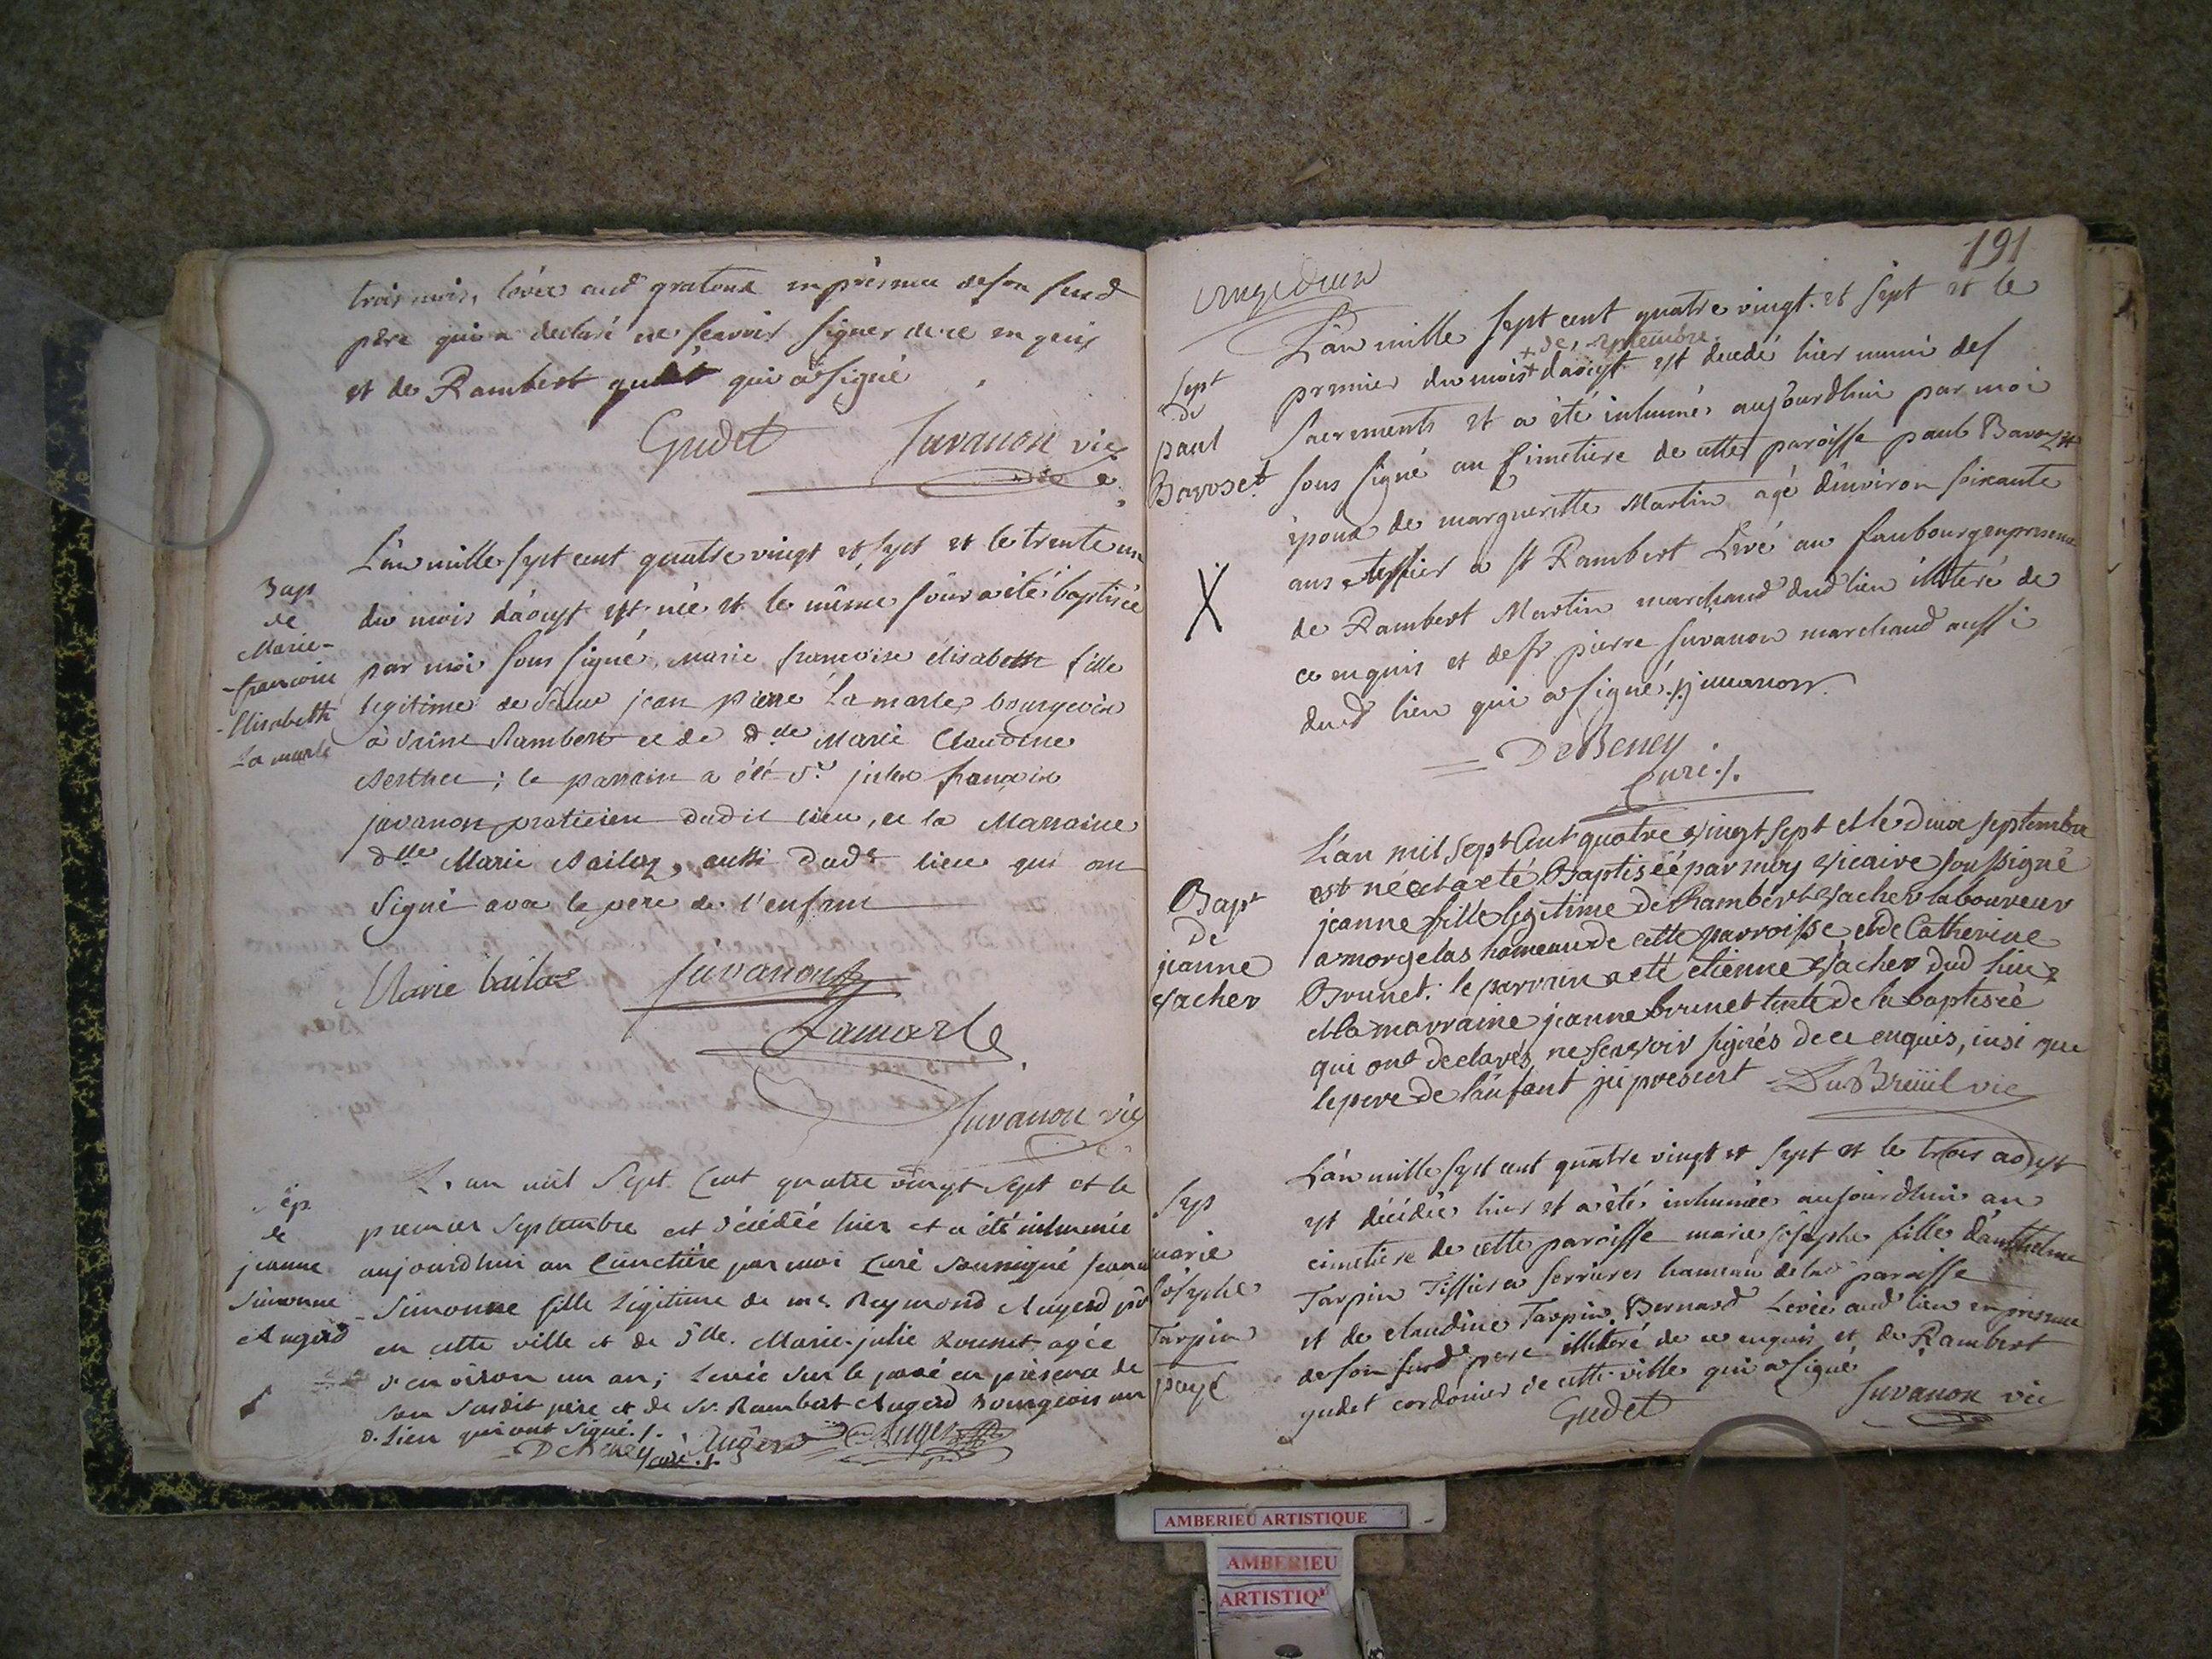 trois mois, levée aud gratoux en présence de son susd
père qui a declaré ne scavoir signer de ce enquis
et de Rambert gudet qui a signé
Gudet Juvanon vic
Bap
de
Marie-
françoise
Elisabeth
La marle
L'an mille sept cent quatre vingt et sept et le trente un
du mois d'aoust est née et le même jour a été baptisée
par moi sous signé, marie francoise élisabeth fille
legitime de sieur jean pierre La marle bourgeois
à Saint Rambert et de dlle Marie Claudine
; le parrain a été Sr. françois
juvanon praticien dudit lieu, et la Marraine
dlle Marie Bailoz, aussi dudt lieu qui ont
signé avec le pere de l'enfant
Marie bailoz Juvanon
Lamarle
Juvanon vic
Sép
de
jeanne
Simonne
Augerd
L'an mil Sept Cent quatre vingt Sept et le
premier Septembre est décédée hier et a été inhumée
aujourdhui au Cimetière par moi Curé soussigné jeanne
Simonne fille Légitime de me Reymond Augerd
en cette ville et de dlle. Marie-julie agée
d'environ un an; Levée sur le pavé en présence de
son susdit père et de Sr. Rambert Augerd Bourgeois au
d. Lieu qui ont signé./.
DeBeney curé./. Augerd Augerd
191
Sept
de
paul
Baroset
X
L'an mille sept cent quatre vingt et sept et le
+ de septembre
premier du mois + d'aoust est decedé hier muni des
sacrements et a été inhumé aujourdhui par moi
sous signé au cimetiere de cette paroisse paul Baroset
époux de margueritte Martin agé d'environ soixante
ans tissier a st Rambert Levé au faubourg en presence
de Rambert Martin marchand dud lieu illiteré de
ce enquis et de sr pierre Juvanon marchand aussi
dud lieu qui a signé. p juvanon
DeBeney
Curé./.
Bapt
de
jeanne
vacher
L'an mil sept Cent quatre vingt sept et le deux septembre
est née et a eté Baptiséé par moy vicaire soussigné
jeanne fille legitime de Rambert vacher laboureur
a morgelas hameau de cette parroisse et de Catherine
Brunet: le parrain a eté etienne vacher dud lieu
et la marraine jeanne brunet tente de la baptiséé
qui ont declarés ne scavoir signés de ce enquis, insi que
le pere de l'enfant ici present DuBreüil vic
Sep
marie
Josephe
Tarpin
payé
L'an mille sept cent quatre vingt et sept et le trois aoust
est décédée hier et a été inhumée aujourdhui au
cimetiere de cette paroisse marie josephe fille d'anthelme
Tarpin Tissier a serrieres hameau de lad paroisse
et de claudine Tarpin Bernard Levée aud lieu en presence
de son susd pere illiteré de ce enquis et de Rambert
gudet cordonier de cette ville qui a signé
Gudet Juvanon vic
AMBERIEU ARTISTIQUE
AMBERIEU
ARTISTIQ